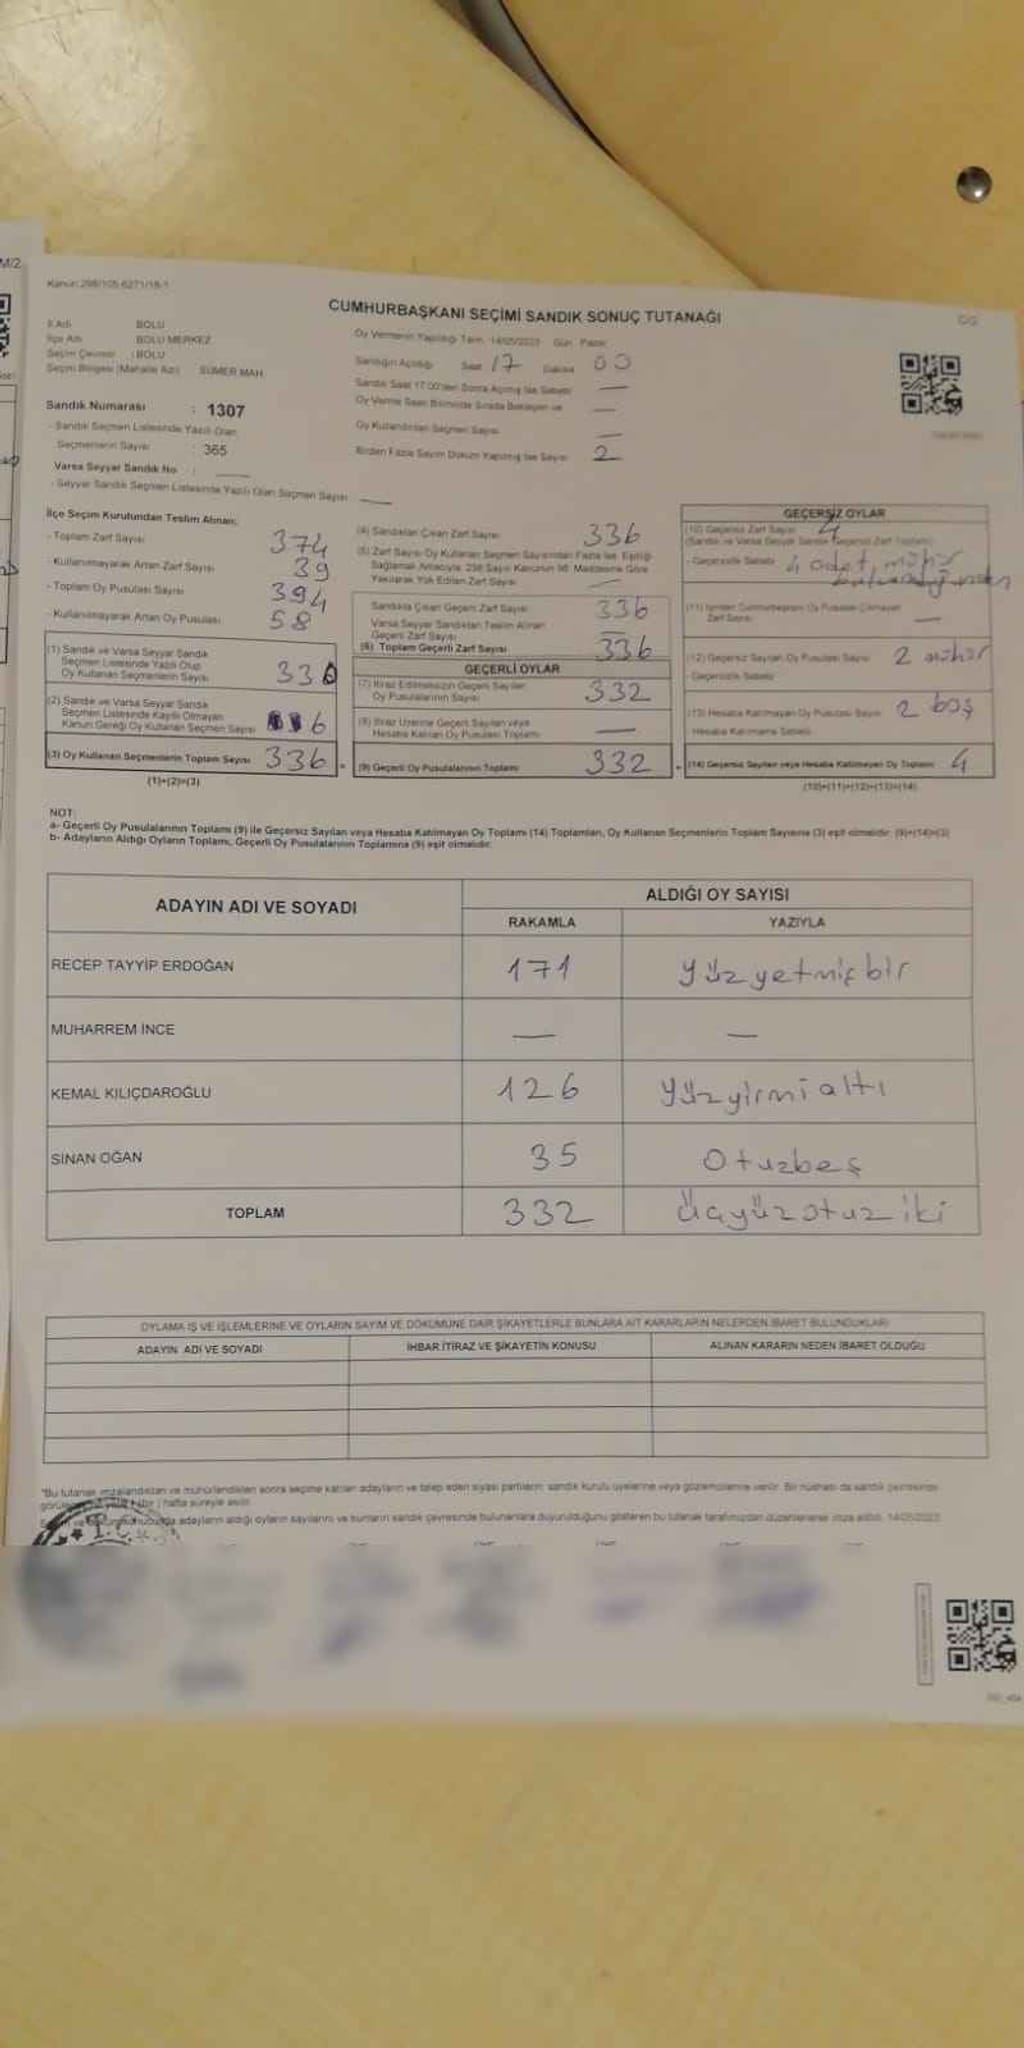 M/2
Kanun:298/105.6271/18-1
CUMHURBAŞKANI SEÇİMİ SANDIK SONUÇ TUTANAĞI
İl Adı BOLU
İlçe Adı BOLU MERKEZ
Seçim Çevresi : BOLU
Seçim Bölgesi (Mahalle Adı) SÜMER MAH.
Sandık Numarası : 1307
- Sandık Seçmen Listesinde Yazılı Olan
Seçmenlerin Sayısı : 365
Varsa Seyyar Sandık No : —
- Seyyar Sandık Seçmen Listesinde Yazılı Olan Seçmen Sayısı —
Oy Vermenin Yapıldığı Tarih: 14/05/2023 Gün: Pazar
Sandığın Açıldığı Saat 17 Dakika 00
Sandık Saat 17.00'den Sonra Açılmış İse Sebebi —
Oy Verme Saati Bitiminde Sırada Bekleyen ve —
Oy Kullandırılan Seçmen Sayısı —
Birden Fazla Sayım Döküm Yapılmış İse Sayısı 2
İlçe Seçim Kurulundan Teslim Alınan;
- Toplam Zarf Sayısı 374
- Kullanılmayarak Artan Zarf Sayısı 39
- Toplam Oy Pusulası Sayısı 394
- Kullanılmayarak Artan Oy Pusulası 58
(1) Sandık ve Varsa Seyyar Sandık
Seçmen Listesinde Yazılı Olup
Oy Kullanan Seçmenlerin Sayısı 330
(2) Sandık ve Varsa Seyyar Sandık
Seçmen Listesinde Kayıtlı Olmayan
Kanun Gereği Oy Kullanan Seçmen Sayısı 6
(3) Oy Kullanan Seçmenlerin Toplam Sayısı 336
(1)+(2)=(3)
(4) Sandıktan Çıkan Zarf Sayısı 336
(5) Zarf Sayısı Oy Kullanan Seçmen Sayısından Fazla İse, Eşitliği
Sağlamak Amacıyla, 298 Sayılı Kanunun 98. Maddesine Göre
Yakılarak Yok Edilen Zarf Sayısı —
Sandıkta Çıkan Geçerli Zarf Sayısı 336
Varsa Seyyar Sandıktan Teslim Alınan
Geçerli Zarf Sayısı —
(6) Toplam Geçerli Zarf Sayısı 336
GEÇERLİ OYLAR
(7) İtiraz Edilmeksizin Geçerli Sayılan
Oy Pusulalarının Sayısı 332
(8) İtiraz Üzerine Geçerli Sayılan veya
Hesaba Katılan Oy Pusulası Toplamı —
(9) Geçerli Oy Pusulalarının Toplamı 332
GEÇERSİZ OYLAR
(10) Geçersiz Zarf Sayısı 4
(Sandık ve Varsa Seyyar Sandık Geçersiz Zarf Toplamı)
- Geçersizlik Sebebi 4 adet mühür
bulunduğundan
(11) İçinden Cumhurbaşkanı Oy Pusulası Çıkmayan
Zarf Sayısı —
(12) Geçersiz Sayılan Oy Pusulası Sayısı 2 mühür
Geçersizlik Sebebi
(13) Hesaba Katılmayan Oy Pusulası Sayısı 2 boş
Hesaba Katılmama Sebebi
(14) Geçersiz Sayılan veya Hesaba Katılmayan Oy Toplamı 4
(10)+(11)+(12)+(13)=(14)
NOT:
a- Geçerli Oy Pusulalarının Toplamı (9) ile Geçersiz Sayılan veya Hesaba Katılmayan Oy Toplamı (14) Toplamları, Oy Kullanan Seçmenlerin Toplam Sayısına (3) eşit olmalıdır. (9)+(14)=(3)
b- Adayların Aldığı Oyların Toplamı, Geçerli Oy Pusulalarının Toplamına (9) eşit olmalıdır.
ADAYIN ADI VE SOYADI ALDIĞI OY SAYISI
RAKAMLA YAZIYLA
RECEP TAYYİP ERDOĞAN 171 yüzyetmişbir
MUHARREM İNCE — —
KEMAL KILIÇDAROĞLU 126 yüzyirmialtı
SİNAN OĞAN 35 Otuzbeş
TOPLAM 332 Üçyüzotuziki
OYLAMA İŞ VE İŞLEMLERİNE VE OYLARIN SAYIM VE DÖKÜMÜNE DAİR ŞİKAYETLERLE BUNLARA AİT KARARLARIN NELERDEN İBARET BULUNDUKLARI
ADAYIN ADI VE SOYADI İHBAR İTİRAZ VE ŞİKAYETİN KONUSU ALINAN KARARIN NEDEN İBARET OLDUĞU
*Bu tutanak imzalandıktan ve mühürlendikten sonra seçime katılan adayların ve talep eden siyasi partilerin sandık kurulu üyelerine veya gözlemcilerine verilir. Bir nüshası da sandık çevresinde
hafta süreyle asılır.
adayların aldığı oyların sayılarını ve bunların sandık çevresinde bulunanlara duyurulduğunu gösteren bu tutanak tarafımızdan düzenlenerek imza edildi. 14/05/2023
T.C.